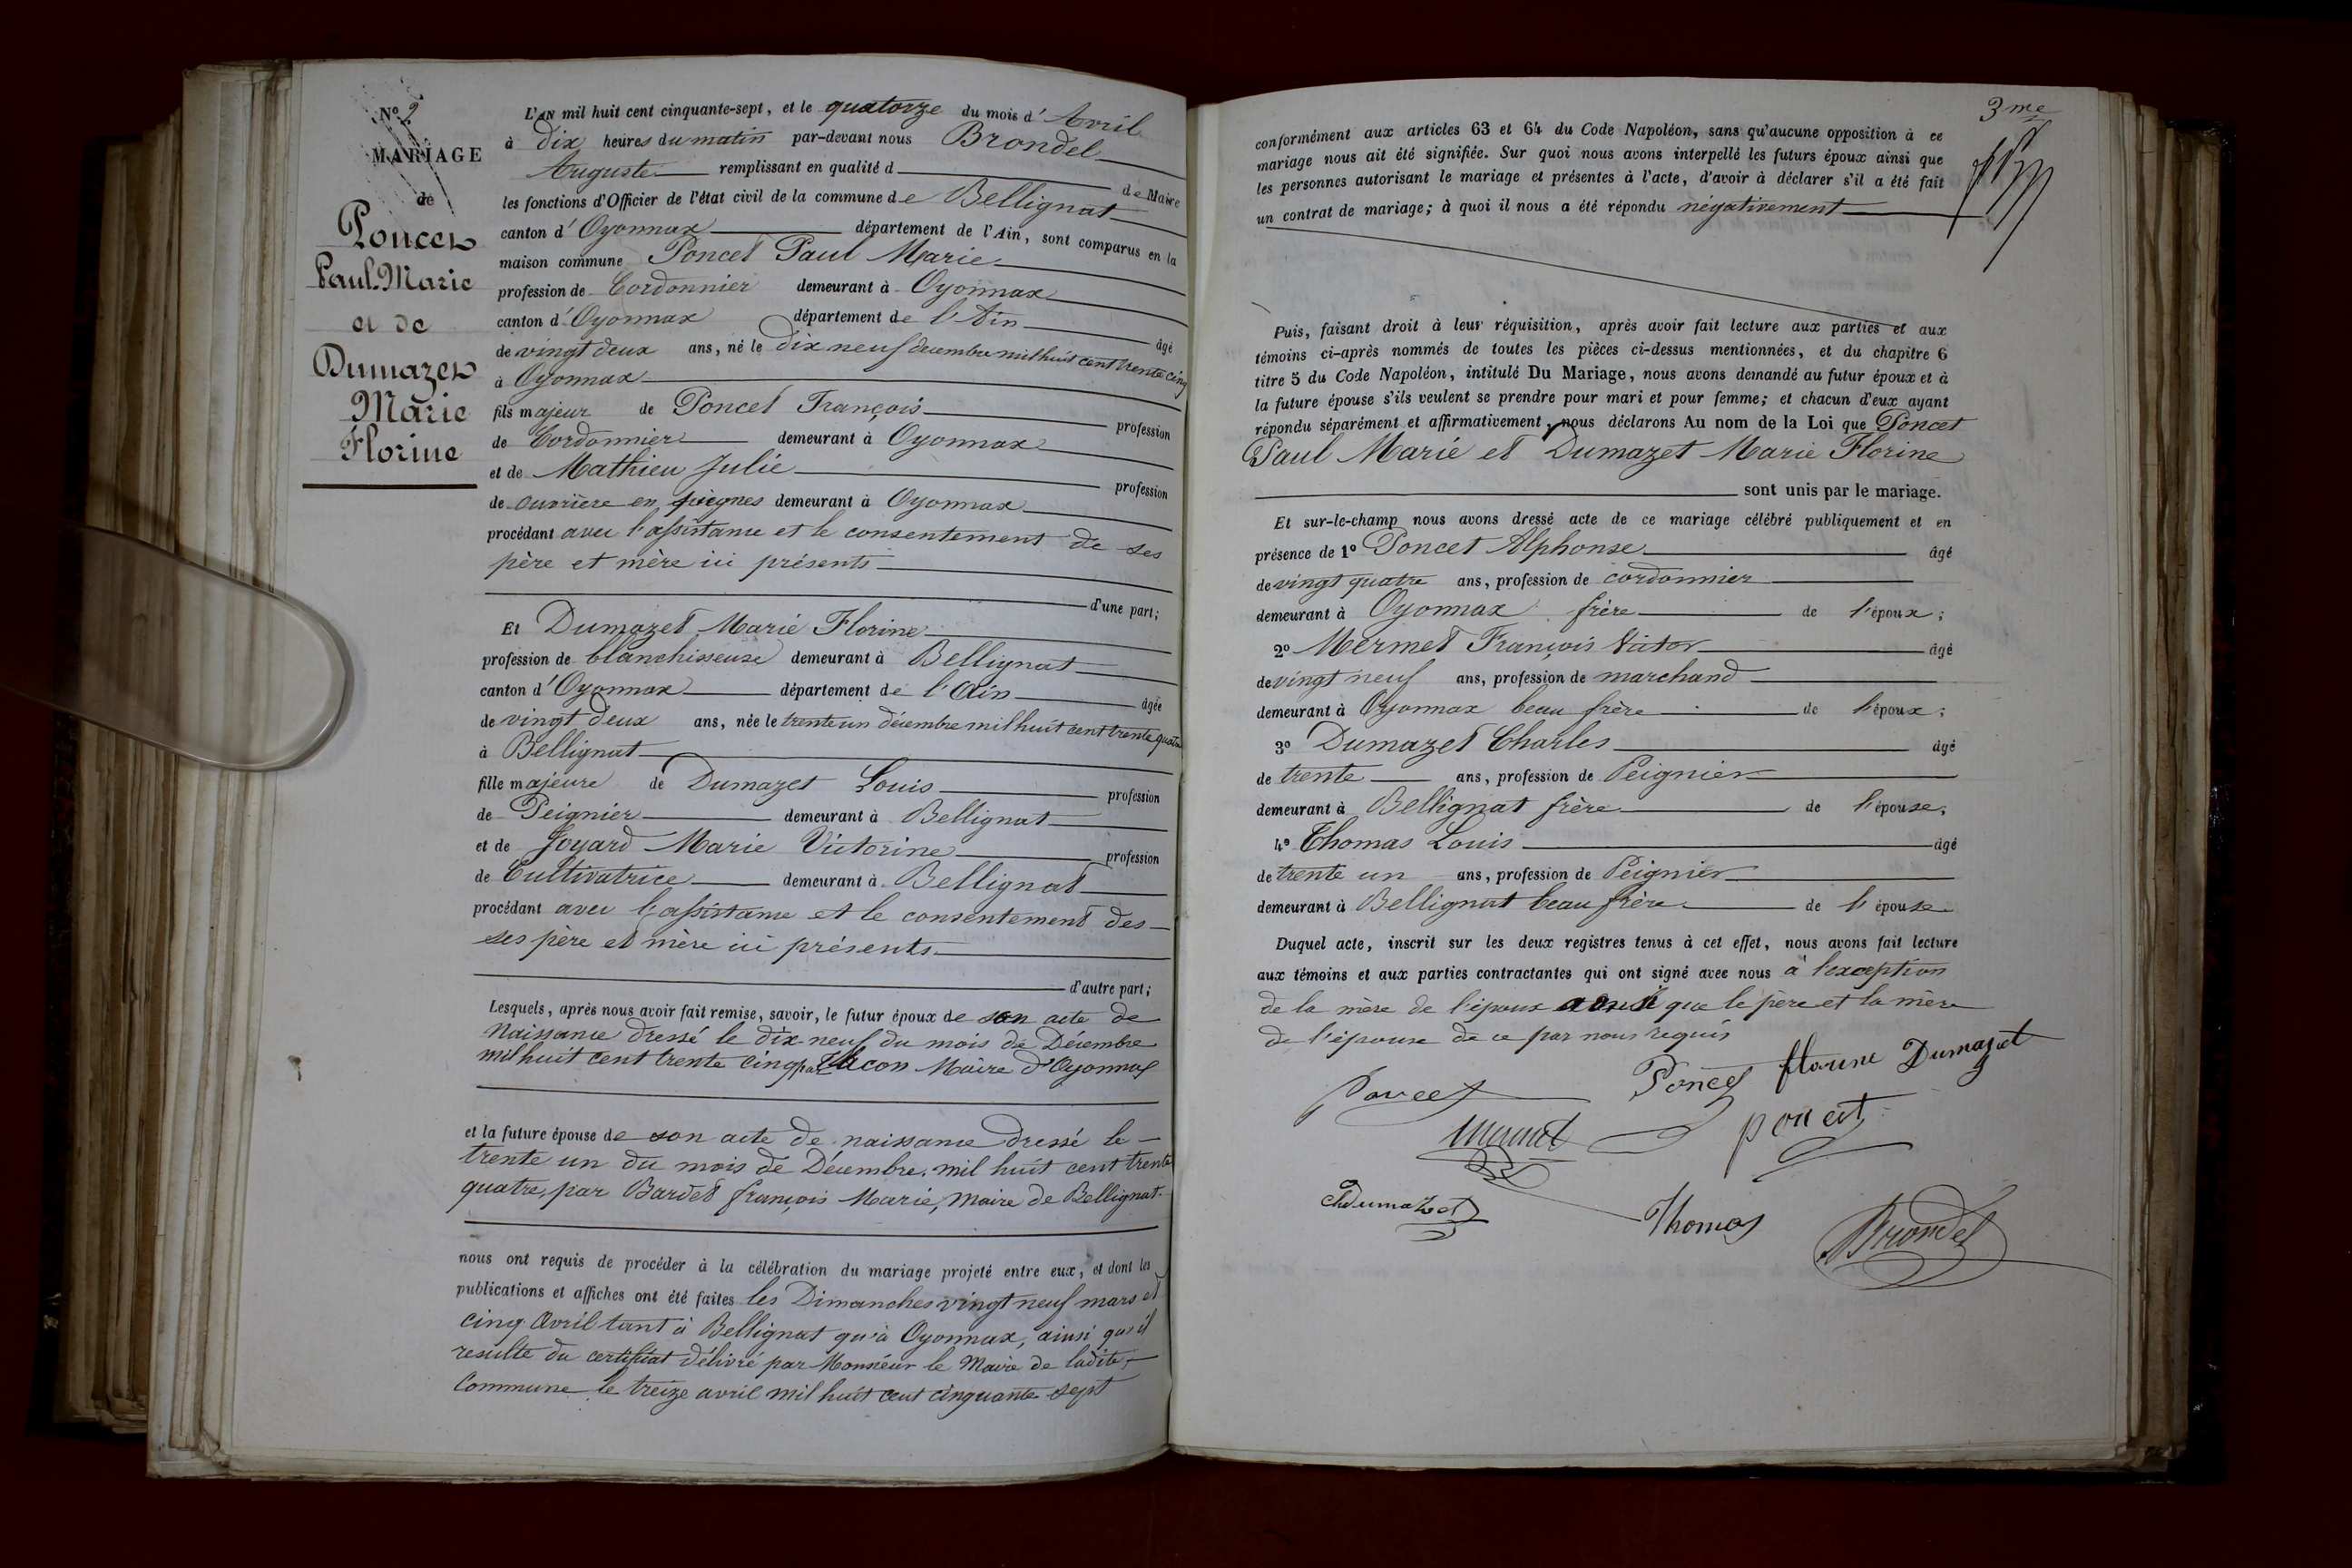 N° 2
MARIAGE
de
Poncet
Paul Marie
et de
Dumazet
Marie
Florine
L'AN mil huit cent cinquante-sept, et le quatorze du mois d'Avril
à Dix heures du matin par-devant nous Brondel
Auguste remplissant en qualité d de Maire
les fonctions d'Officier de l'état civil de la commune de Bellignat
canton d'Oyonnax département de l'Ain, sont comparus en la
maison commune Poncet Paul Marie
profession de Cordonnier demeurant à Oyonnax
canton d'Oyonnax département de l'Ain âgé
de vingt deux ans, né le dix neuf decembre mil huit cent trente cinq
à Oyonnax
fils majeur de Poncet François profession
de Cordonnier demeurant à Oyonnax
et de Mathieu Julie profession
de ouvrière en peignes demeurant à Oyonnax
procédant avec l'assistance et le consentement de ses
père et mère ici présents
d'une part;
Et Dumazet Marie Florine
profession de blanchisseuse demeurant à Bellignat
canton d'Oyonnax département de l'Ain âgée
de vingt deux ans, née le trente un décembre mil huit cent trente quatre
à Bellignat
fille majeure de Dumazet Louis profession
de Peignier demeurant à Bellignat
et de Joyard Marie Victorine profession
de Cultivatrice demeurant à Bellignat
procédant avec l'assistance et le consentement des
ses père et mère ici présents
d'autre part;
Lesquels, après nous avoir fait remise, savoir, le futur époux de son acte de
Naissance dressé le dix-neuf du mois de Décembre
mil huit cent trente cinq par Maire d'Oyonnax
et la future épouse de son acte de naissance dressé le
trente un du mois de Décembre mil huit cent trente
quatre, par Bardet françois Marie, Maire de Bellignat.
nous ont requis de procéder à la célébration du mariage projeté entre eux, et dont les
publications et affiches ont été faites les Dimanches vingt neuf mars et
cinq Avril tant à Bellignat qu'à Oyonnax, ainsi qu'il
resulte du certificat délivré par Monsieur le Maire de ladite
Commune le treize avril mil huit cent cinquante sept
3me
conformément aux articles 63 et 64 du Code Napoléon, sans qu'aucune opposition à ce
mariage nous ait été signifiée. Sur quoi nous avons interpellé les futurs époux ainsi que
les personnes autorisant le mariage et présentes à l'acte, d'avoir à déclarer s'il a été fait
un contrat de mariage; à quoi il nous a été répondu négativement
Puis, faisant droit à leur réquisition, après avoir fait lecture aux parties et aux
témoins ci-après nommés de toutes les pièces ci-dessus mentionnées, et du chapitre 6
titre 5 du Code Napoléon, intitulé Du Mariage, nous avons demandé au futur époux et à
la future épouse s'ils veulent se prendre pour mari et pour femme; et chacun d'eux ayant
répondu séparément et affirmativement, nous déclarons Au nom de la Loi que Poncet
Paul Marie et Dumazet Marie Florine
sont unis par le mariage.
Et sur-le-champ nous avons dressé acte de ce mariage célébré publiquement et en
présence de 1° Poncet Alphonse âgé
de vingt quatre ans, profession de cordonnier
demeurant à Oyonnax frère de l'époux;
2° Mermet François Victor âgé
de vingt neuf ans, profession de marchand
demeurant à Oyonnax beau frère de l'époux;
3° Dumazet Charles âgé
de trente ans, profession de Peignier
demeurant à Bellignat frère de l'épouse;
4° Thomas Louis âgé
de trente un ans, profession de Peignier
demeurant à Bellignat beau frère de l'épouse
Duquel acte, inscrit sur les deux registres tenus à cet effet, nous avons fait lecture
aux témoins et aux parties contractantes qui ont signé avec nous à l'exception
de la mère de l'époux ainsi que le père et la mère
de l'épouse de ce par nous requis
Poncet Poncet florine Dumazet
Mermet poncet
Ch Dumazet Thomas Brondel